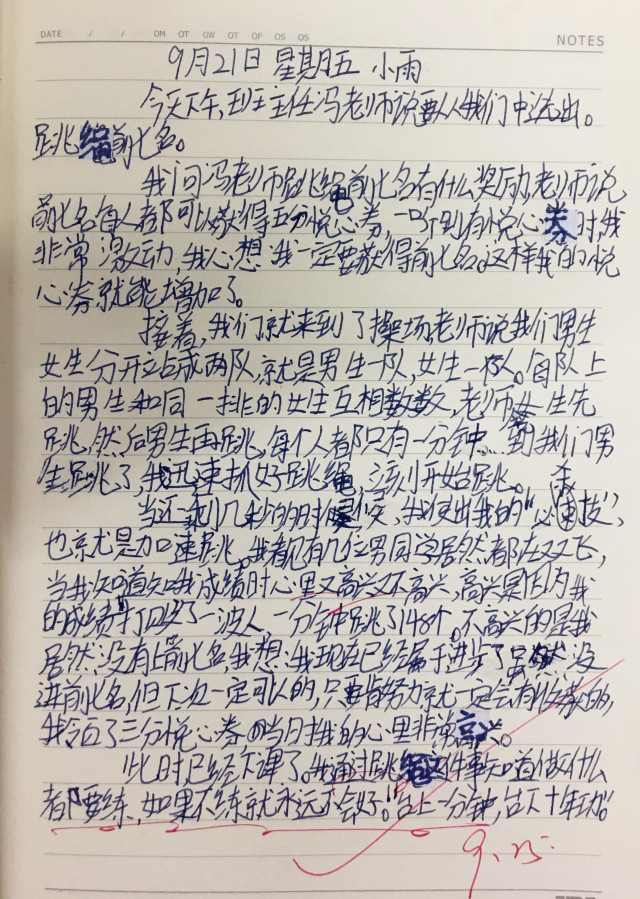 DATE / / OM OT OW OT OF OS OS NOTES
9月21日 星期五 小雨
今天下午,班主任冯老师说要从我们中选出。
跳绳前七名。
我问冯老师跳绳前七名有什么奖励,老师说
前七名每人都可以获得五分悦心券,一听到有悦心券时,我
非常激动,我心想我一定要获得前七名。这样我的悦
心券就能增加了。
接着,我们就来到了操场,老师说我们男生
女生分开站成两队,就是男生一队,女生一队。每队上
的男生和同一排的女生互相数数,老师女生先
跳,然后男生再跳,每个人都只有一分钟……到我们男
生跳了,我迅速抓好跳绳,立刻开始跳。
当还剩几秒的时候,我使出我的“必杀技”,
也就是加速跳。我看见有几位男同学居然都在双飞,
当我知道知我成绩时心里又高兴又不高兴,高兴是因为我
的成绩打败了一波人,一分钟跳了148个。不高兴的是我
居然没有上前七名,我想:我现在已经属于进步了虽然没
进前七名,但下次一定可以的,只要肯努力就一定会有收获的,
我领了三分悦心券的当日我的心里非常高兴。
此时已经下课了。我通过跳绳这件事知道做什么
都要练,如果不练就永远不会好。“台上一分钟,台下十年功”。
9.25.